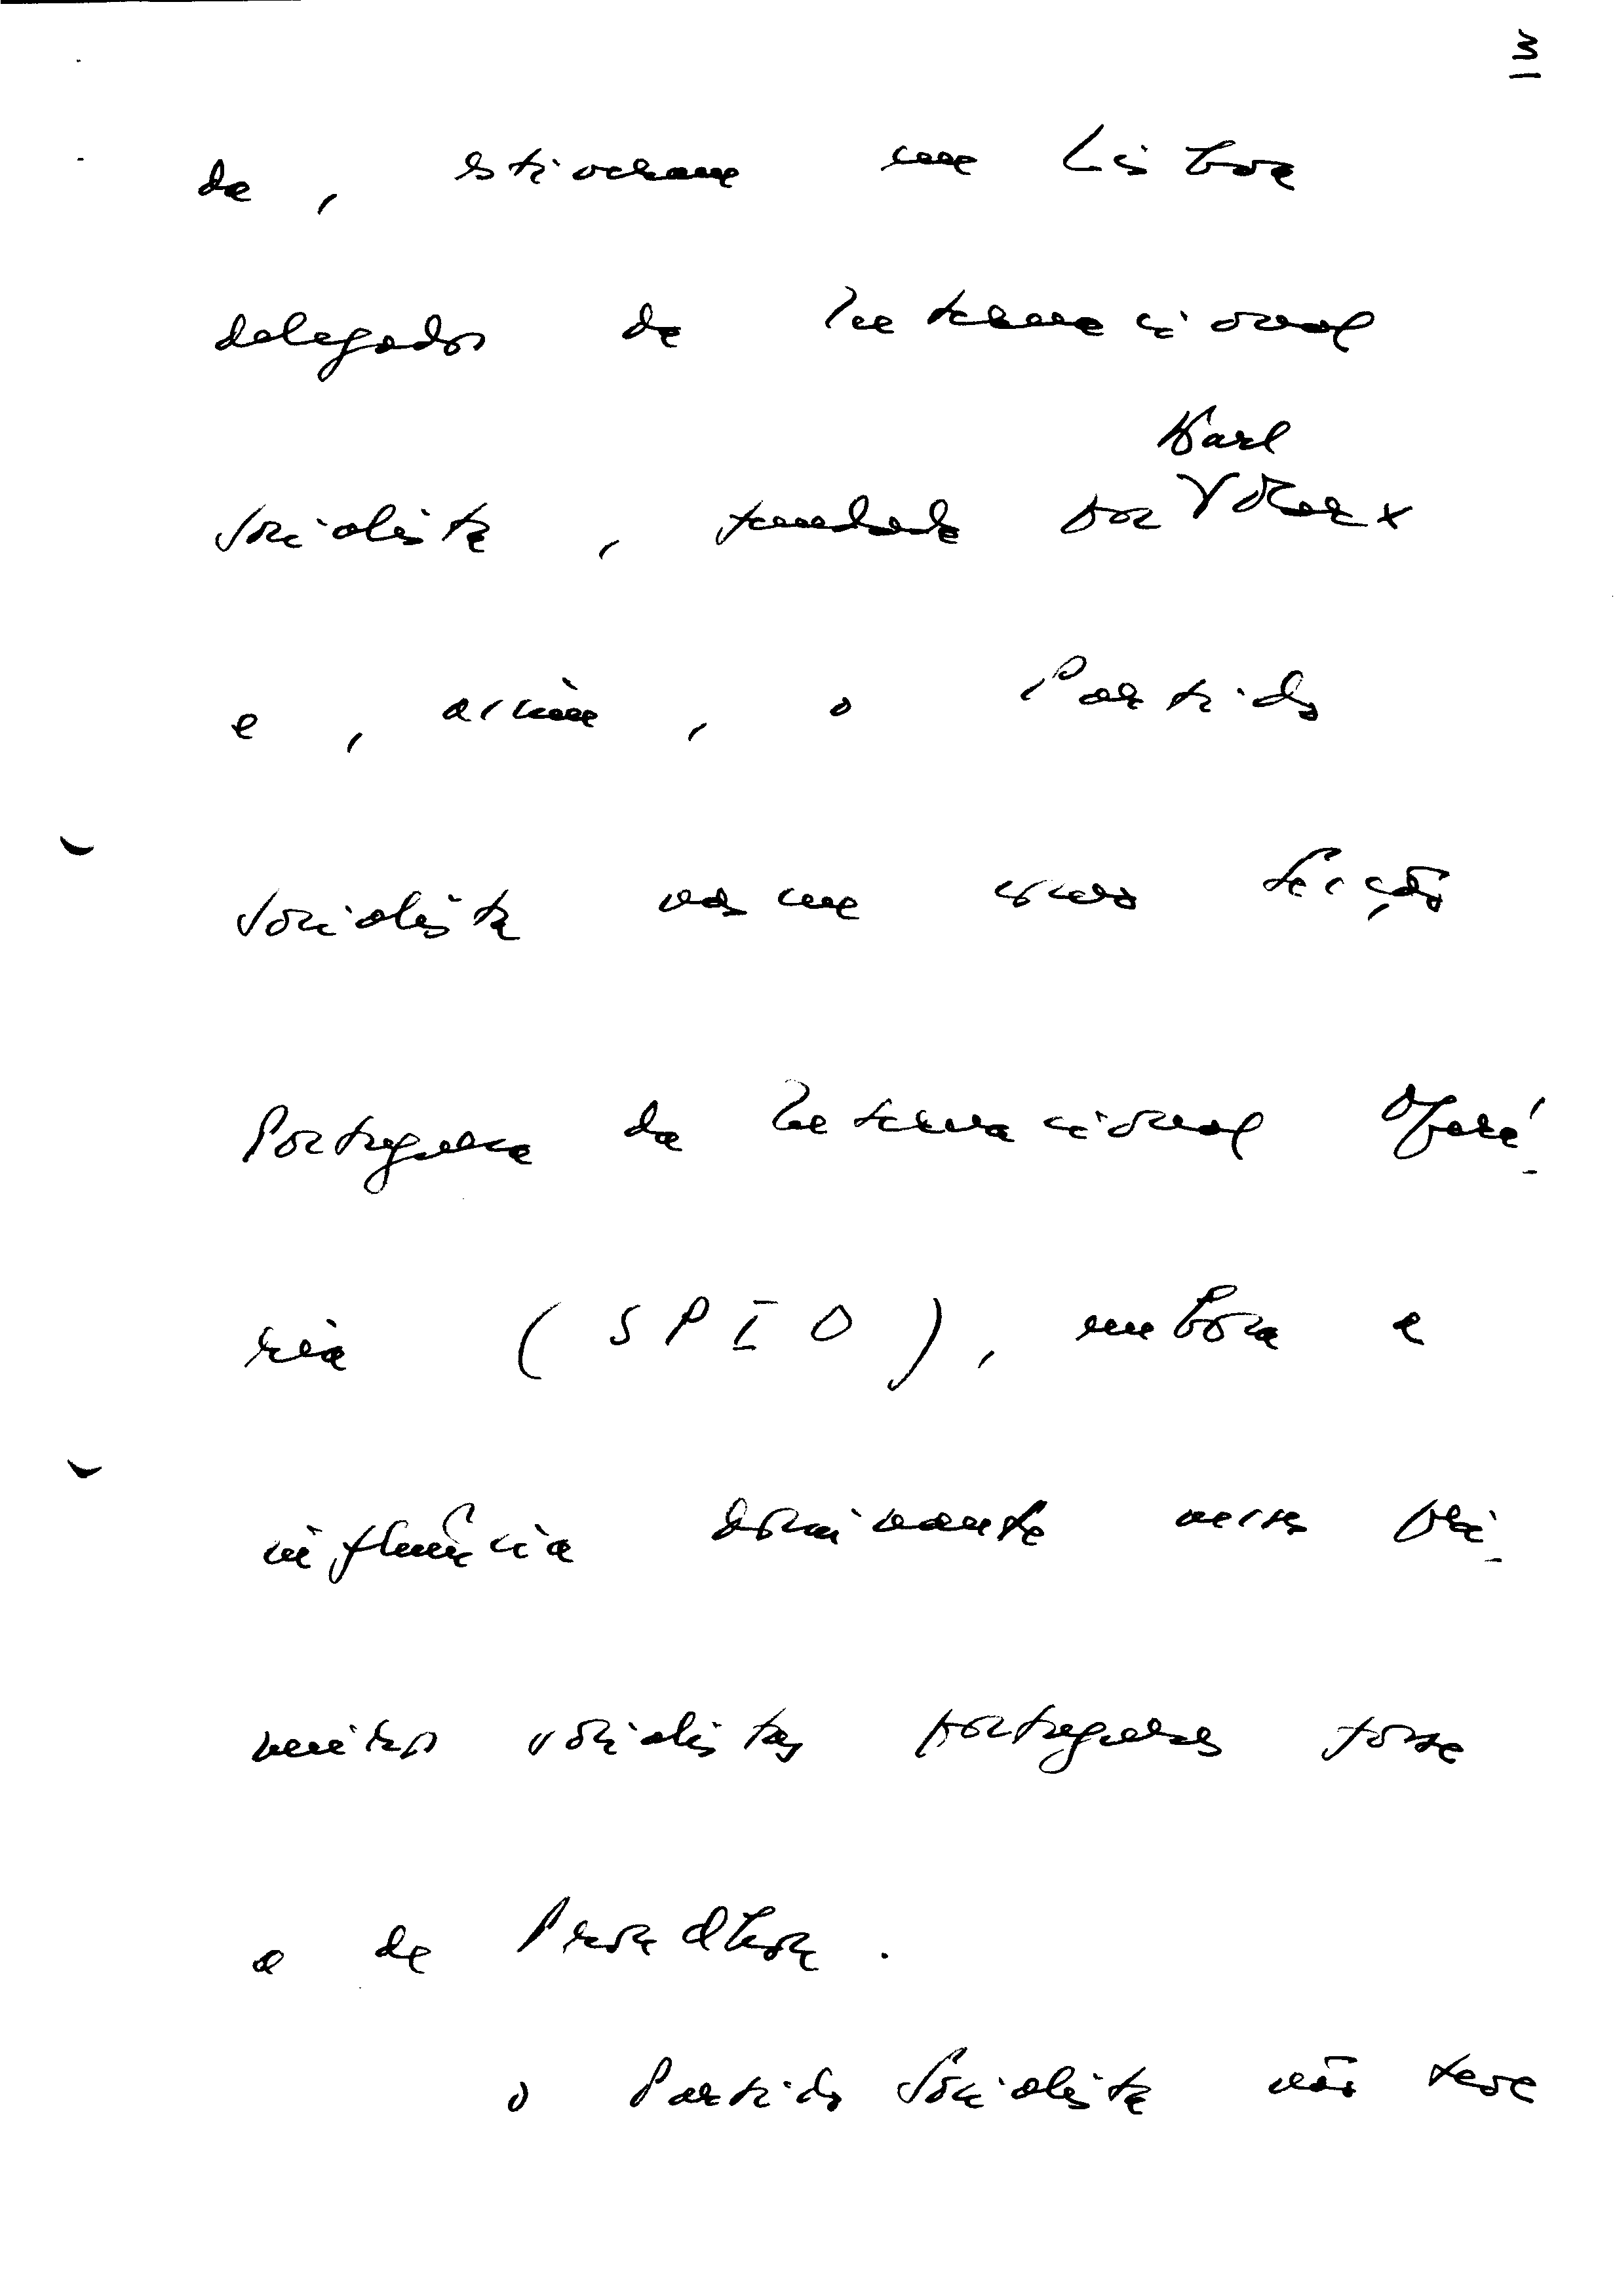 3
da, estiveram em Lisboa
delegados da Internacional
Karl
Socialista, fundada por Marx
e, assim, o Partido
Socialista nasceu como Secção
Portuguesa da Internacional Operá-
ria (SPIO), embora a
influência dominante nesses pri-
meiros socialistas portugueses fosse
a de Proudhon.
O Partido Socialista não teve